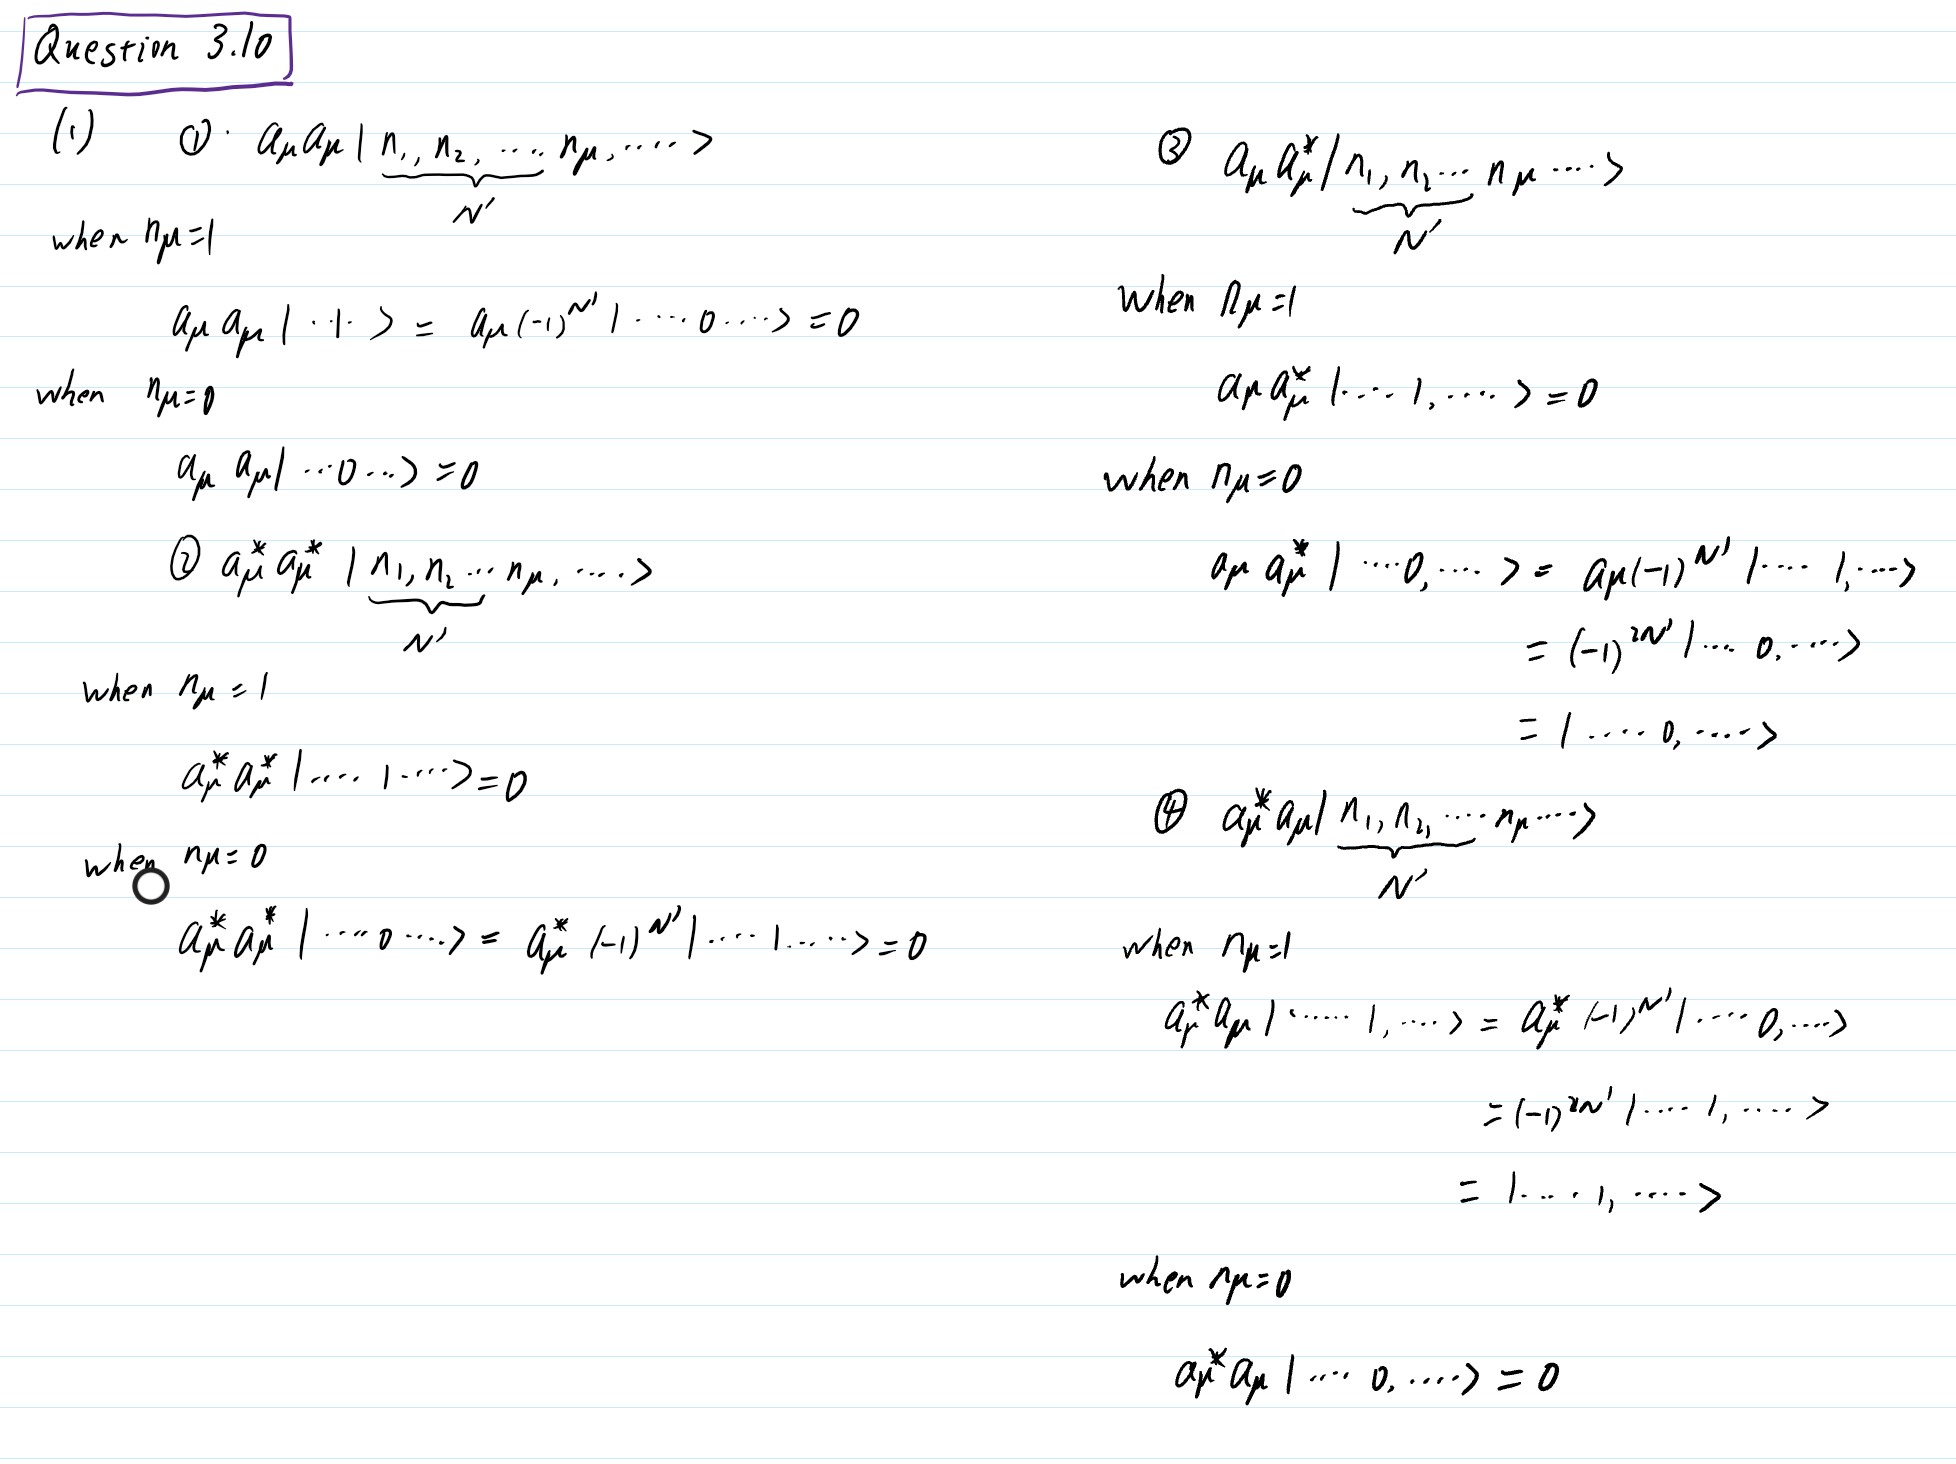 Question 3.10
(1) ①. aμ aμ | n₁, n₂, ..... nμ, ..... >
N'
when nμ=1
aμ aμ | ..1.. > = aμ (-1)^N' | .... 0 .... > = 0
when nμ=0
aμ aμ | ...0... > = 0
② aμ* aμ* | n₁, n₂ ... nμ, ..... >
N'
when nμ = 1
aμ* aμ* | .... 1 .... > = 0
when nμ = 0
aμ* aμ* | ..... 0 ..... > = aμ* (-1)^N' | .... 1 ...... > = 0
③ aμ aμ* | n₁, n₂ ... nμ .... >
N'
when nμ=1
aμ aμ* | .... 1, ..... > = 0
when nμ=0
aμ aμ* | ....0, .... > = aμ (-1)^N' | .... 1, .... >
= (-1)^2N' | .... 0, ..... >
= | ..... 0, ..... >
④ aμ* aμ | n₁, n₂, ..... nμ .... >
N'
when nμ=1
aμ* aμ | ...... 1, ..... > = aμ* (-1)^N' | ..... 0, .... >
= (-1)^2N' | .... 1, ..... >
= | .... 1, ..... >
when nμ=0
aμ* aμ | .... 0, ..... > = 0